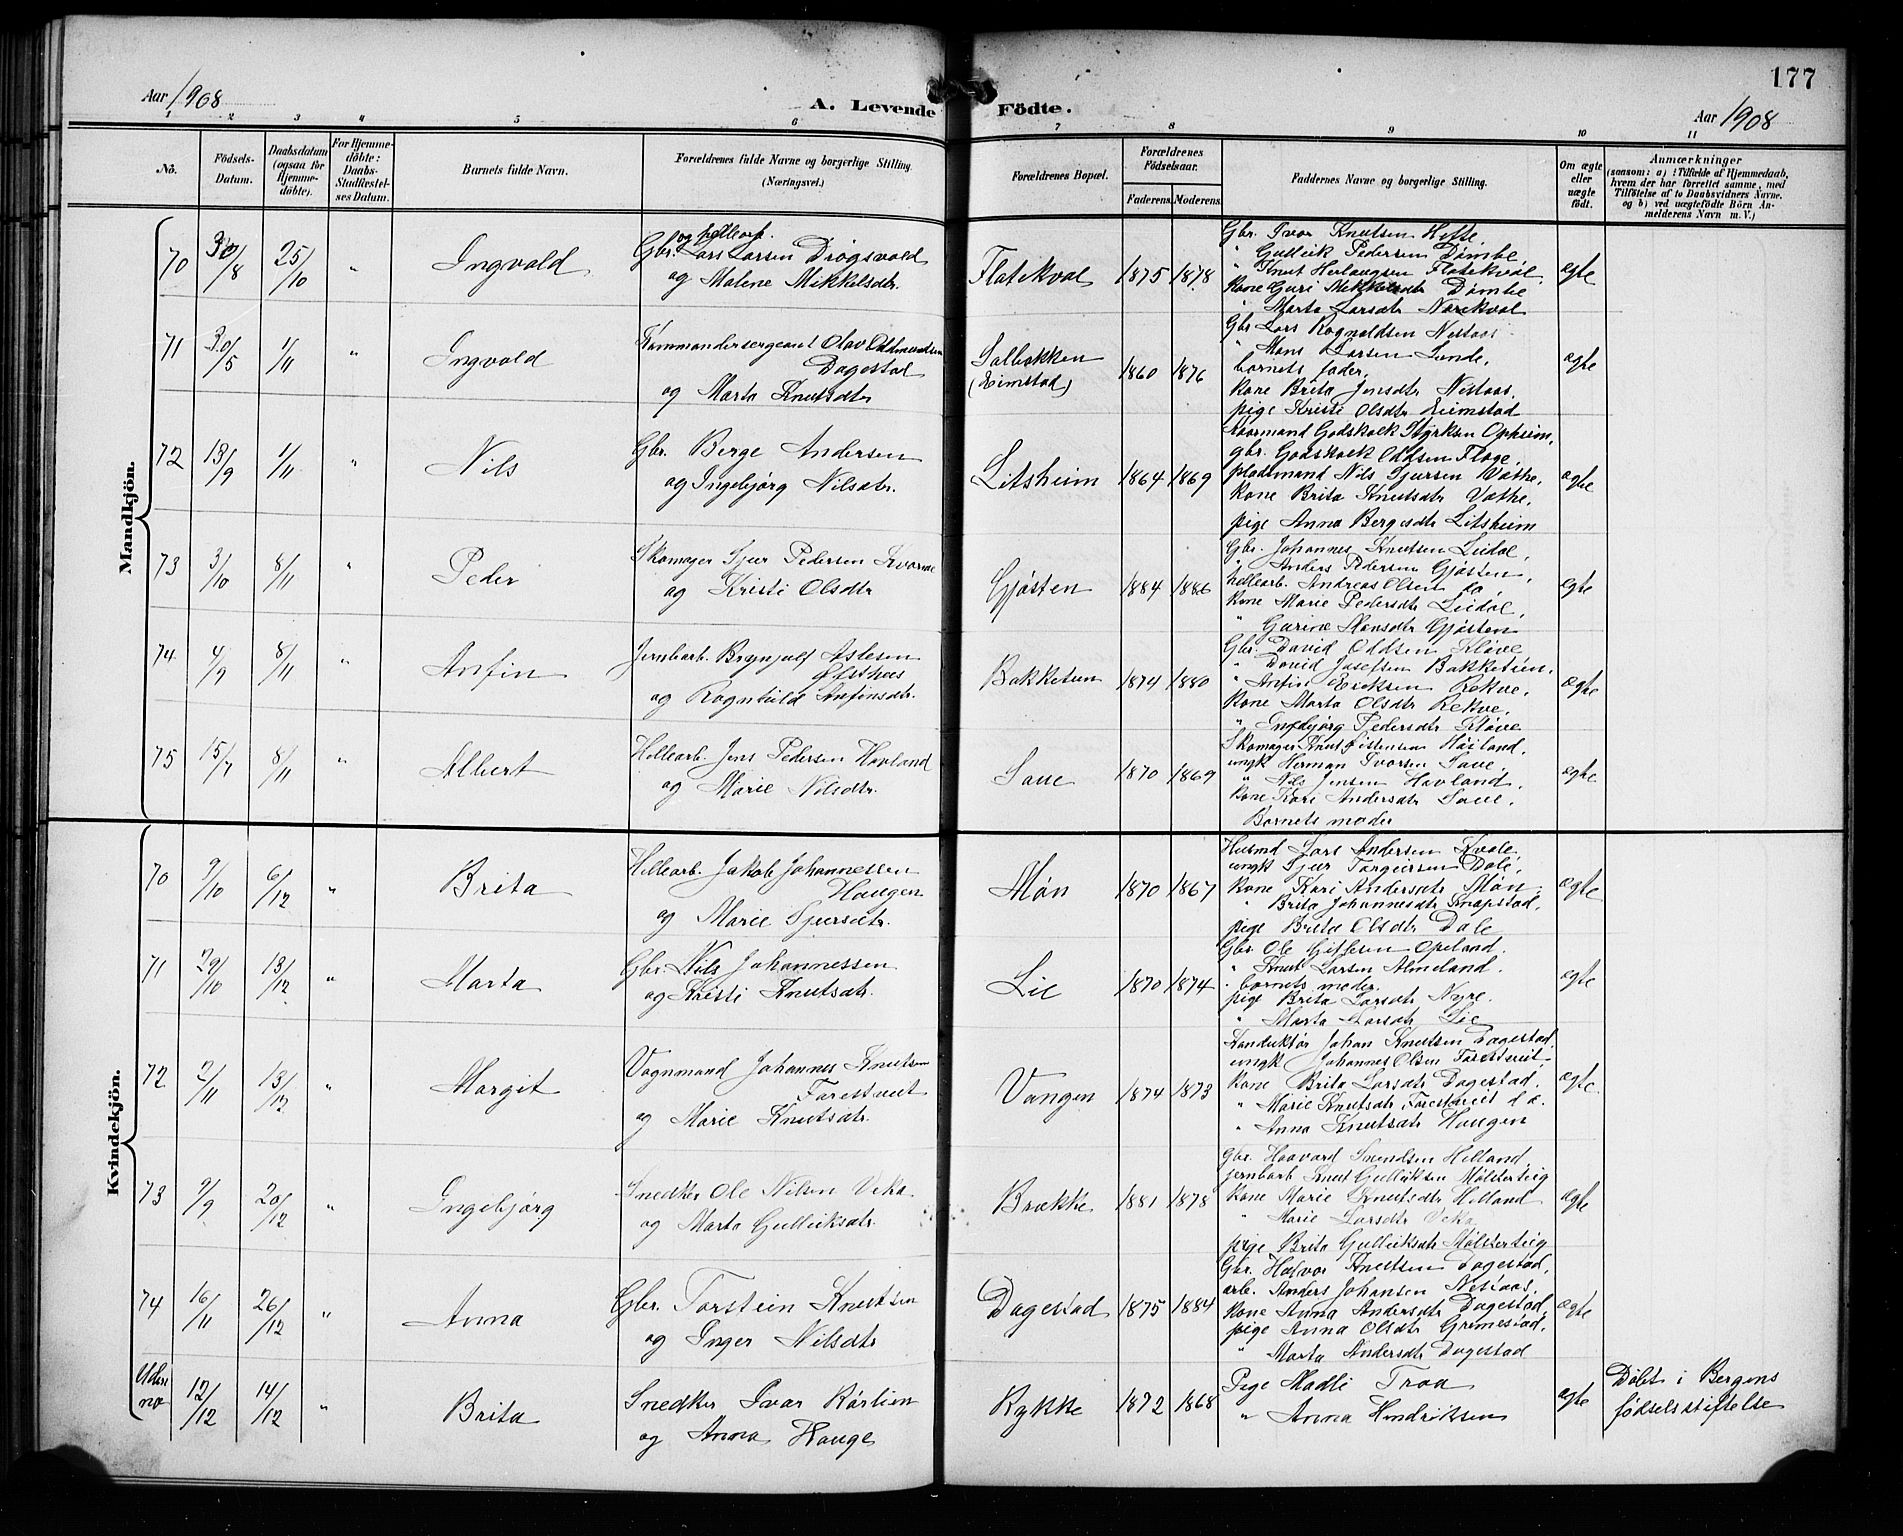 177
Aar 1908
A. Levende Födte.
Aar 1908
1 2 3 4 5 6 7 8 9 10 11
No.
Födsels-Datum.
Daabsdatum (ogsaa for Hjemmedöbte).
For Hjemmedöbte: Daabs-Stadfæstelses Datum.
Barnets fulde Navn.
Forældrenes fulde Navne og borgerlige Stilling. (Næringsvei.)
Forældrenes Bopæl.
Forældrenes Födselsaar.
Faderens. Moderens.
Faddernes Navne og borgerlige Stilling.
Om ægte eller uægte födt.
Anmærkninger
(saasom: a) i Tilfælde af Hjemmedaab, hvem der har forrettet samme, med Tilföielse af to Daabsvidners Navne, og b) ved uægtefödte Börn Anmelderens Navn m. V.)
Mandkjön.
70 30/8 25/10 " Ingvald
og hellearb.
Gbr. Lars Larsen Drøgsvold
og Malene Mikkelsdtr.
Flatekval 1875 1878
Gbr. Ivar Knutsen Hefte,
" Gulleik Pedersen Dømbe,
" Knut Herlaugsen Flatekvål,
Kone Guri Mikkelsdtr Dømbe
" Marta Larsdtr Norekval
ægte
71 30/5 1/11 " Ingvald
Kommandersergeant Olav Oddmundsen
Dagestad
og Marta Knutsdtr
Solbakken
(Eimstad)
1860 1876
Gbr Lars Rognaldsen Nestaas
" Mons Larsen Lunde,
barnets fader,
Kone Brita Jensdtr Nestaas,
pige Kristi Olsdtr Eimstad
ægte
72 13/9 1/11 " Nils
Gbr. Berge Andersen
og Ingebjørg Nilsdtr.
Litsheim 1864 1869
Kaarmand Godskalk Styrksen Opheim,
gbr. Godskalk Oddsen Flage,
pladsmand Nils Sjursen Vathe,
Kone Brita Knutsdtr Vathe,
pige Anna Bergesdtr Litsheim
ægte
73 3/10 8/11 " Peder
Skomager Sjur Pedersen Kvarme
og Kristi Olsdtr
Gjøsten 1884 1886
Gbr. Johannes Knutsen Leidal,
" Anders Pedersen Gjøsten,
hellearb. Andreas Olsen do,
Kone Marie Pedersdtr Leidal,
" Gurine Monsdtr Gjøsten
ægte
74 4/9 8/11 " Anfin
Jernbarb. Brynjulf Aslesen
Ølsthus
og Rognhild Anfinsdtr.
Bakketun 1874 1880
Gbr. David Oddsen Kløve,
" David Josefsen Bakketun,
" Anfin Eriksen Rekve,
Kone Marta Olsdtr Rekve,
" Ingebjørg Pedersdtr Kløve
ægte
75 15/7 8/11 " Albert
Hellearb. Jens Pedersen Havland
og Marie Nilsdtr.
Saue 1870 1869
Skomager Knut Eistensen Høiland,
ungk Herman Ivarsen Saue,
" Nils Jensen Havland,
Kone Kari Andersdtr Saue,
Barnets moder
ægte
Kvindekjön.
70 9/10 6/12 " Brita
Hellearb. Jakob Johannessen
Haugen
og Marie Sjursdtr.
Møn 1870 1867
Husmd Lars Andersen Kvale,
ungk Sjur Torgiersen Dale,
Kone Kari Andersdtr Møn,
" Brita Johannesdtr Knapstad,
pige Brita Olsdtr Dale
ægte
71 29/10 13/12 " Marta
Gbr. Nils Johannessen
og Kristi Knutsdtr.
Lie 1870 1874
Gbr. Ole Gitlesen Opeland.
" Knut Larsen Almeland.
barnets moder.
pige Brita Larsdtr Nyre.
" Marta Larsdtr Lie
ægte
72 2/11 13/12 " Margit
Vognmand Johannes Knutsen
Farestveit
og Marie Knutsdtr.
Vangen 1874 1873
Konduktør Johan Knutsen Dagestad,
ungk Johannes Olsen Farestveit,
Kone Brita Larsdtr Dagestad,
" Marie Knutsdtr Farestveit
" Anna Knutsdtr Haugen
ægte.
73 9/9 20/12 " Ingebjørg
Snedker Ole Nilsen Veka
og Marta Gulleiksdtr.
Brække 1881 1878
Gbr. Haavard Smundsen Helland
jernbarb Knut Gulleiksen Mølsterteig
Kone Marie Knutsdtr Helland
" Marie Larsdtr Veka
pige Brita Gulleiksdtr Mølsterteig
ægte
74 16/11 26/12 " Anna
Gbr. Torstein Knutsen
og Inger Nilsdtr
Dagestad 1875 1884
Gbr. Halvor Knutsen Dagestad,
arb. Anders Johansen Nestaas,
Kone Anna Andersdtr Dagestad,
pige Anna Olsdtr Grimestad,
" Marta Andersdtr Dagestad
ægte
Uden no 12/12 14/12 " Brita
Snedker Ivar Rørlien
og Anna Hauge
Rykke 1872 1868
Pige Madli Troa
" Anna Hendriksen
ægte
Døbt i Bergens
fødselsstiftelse